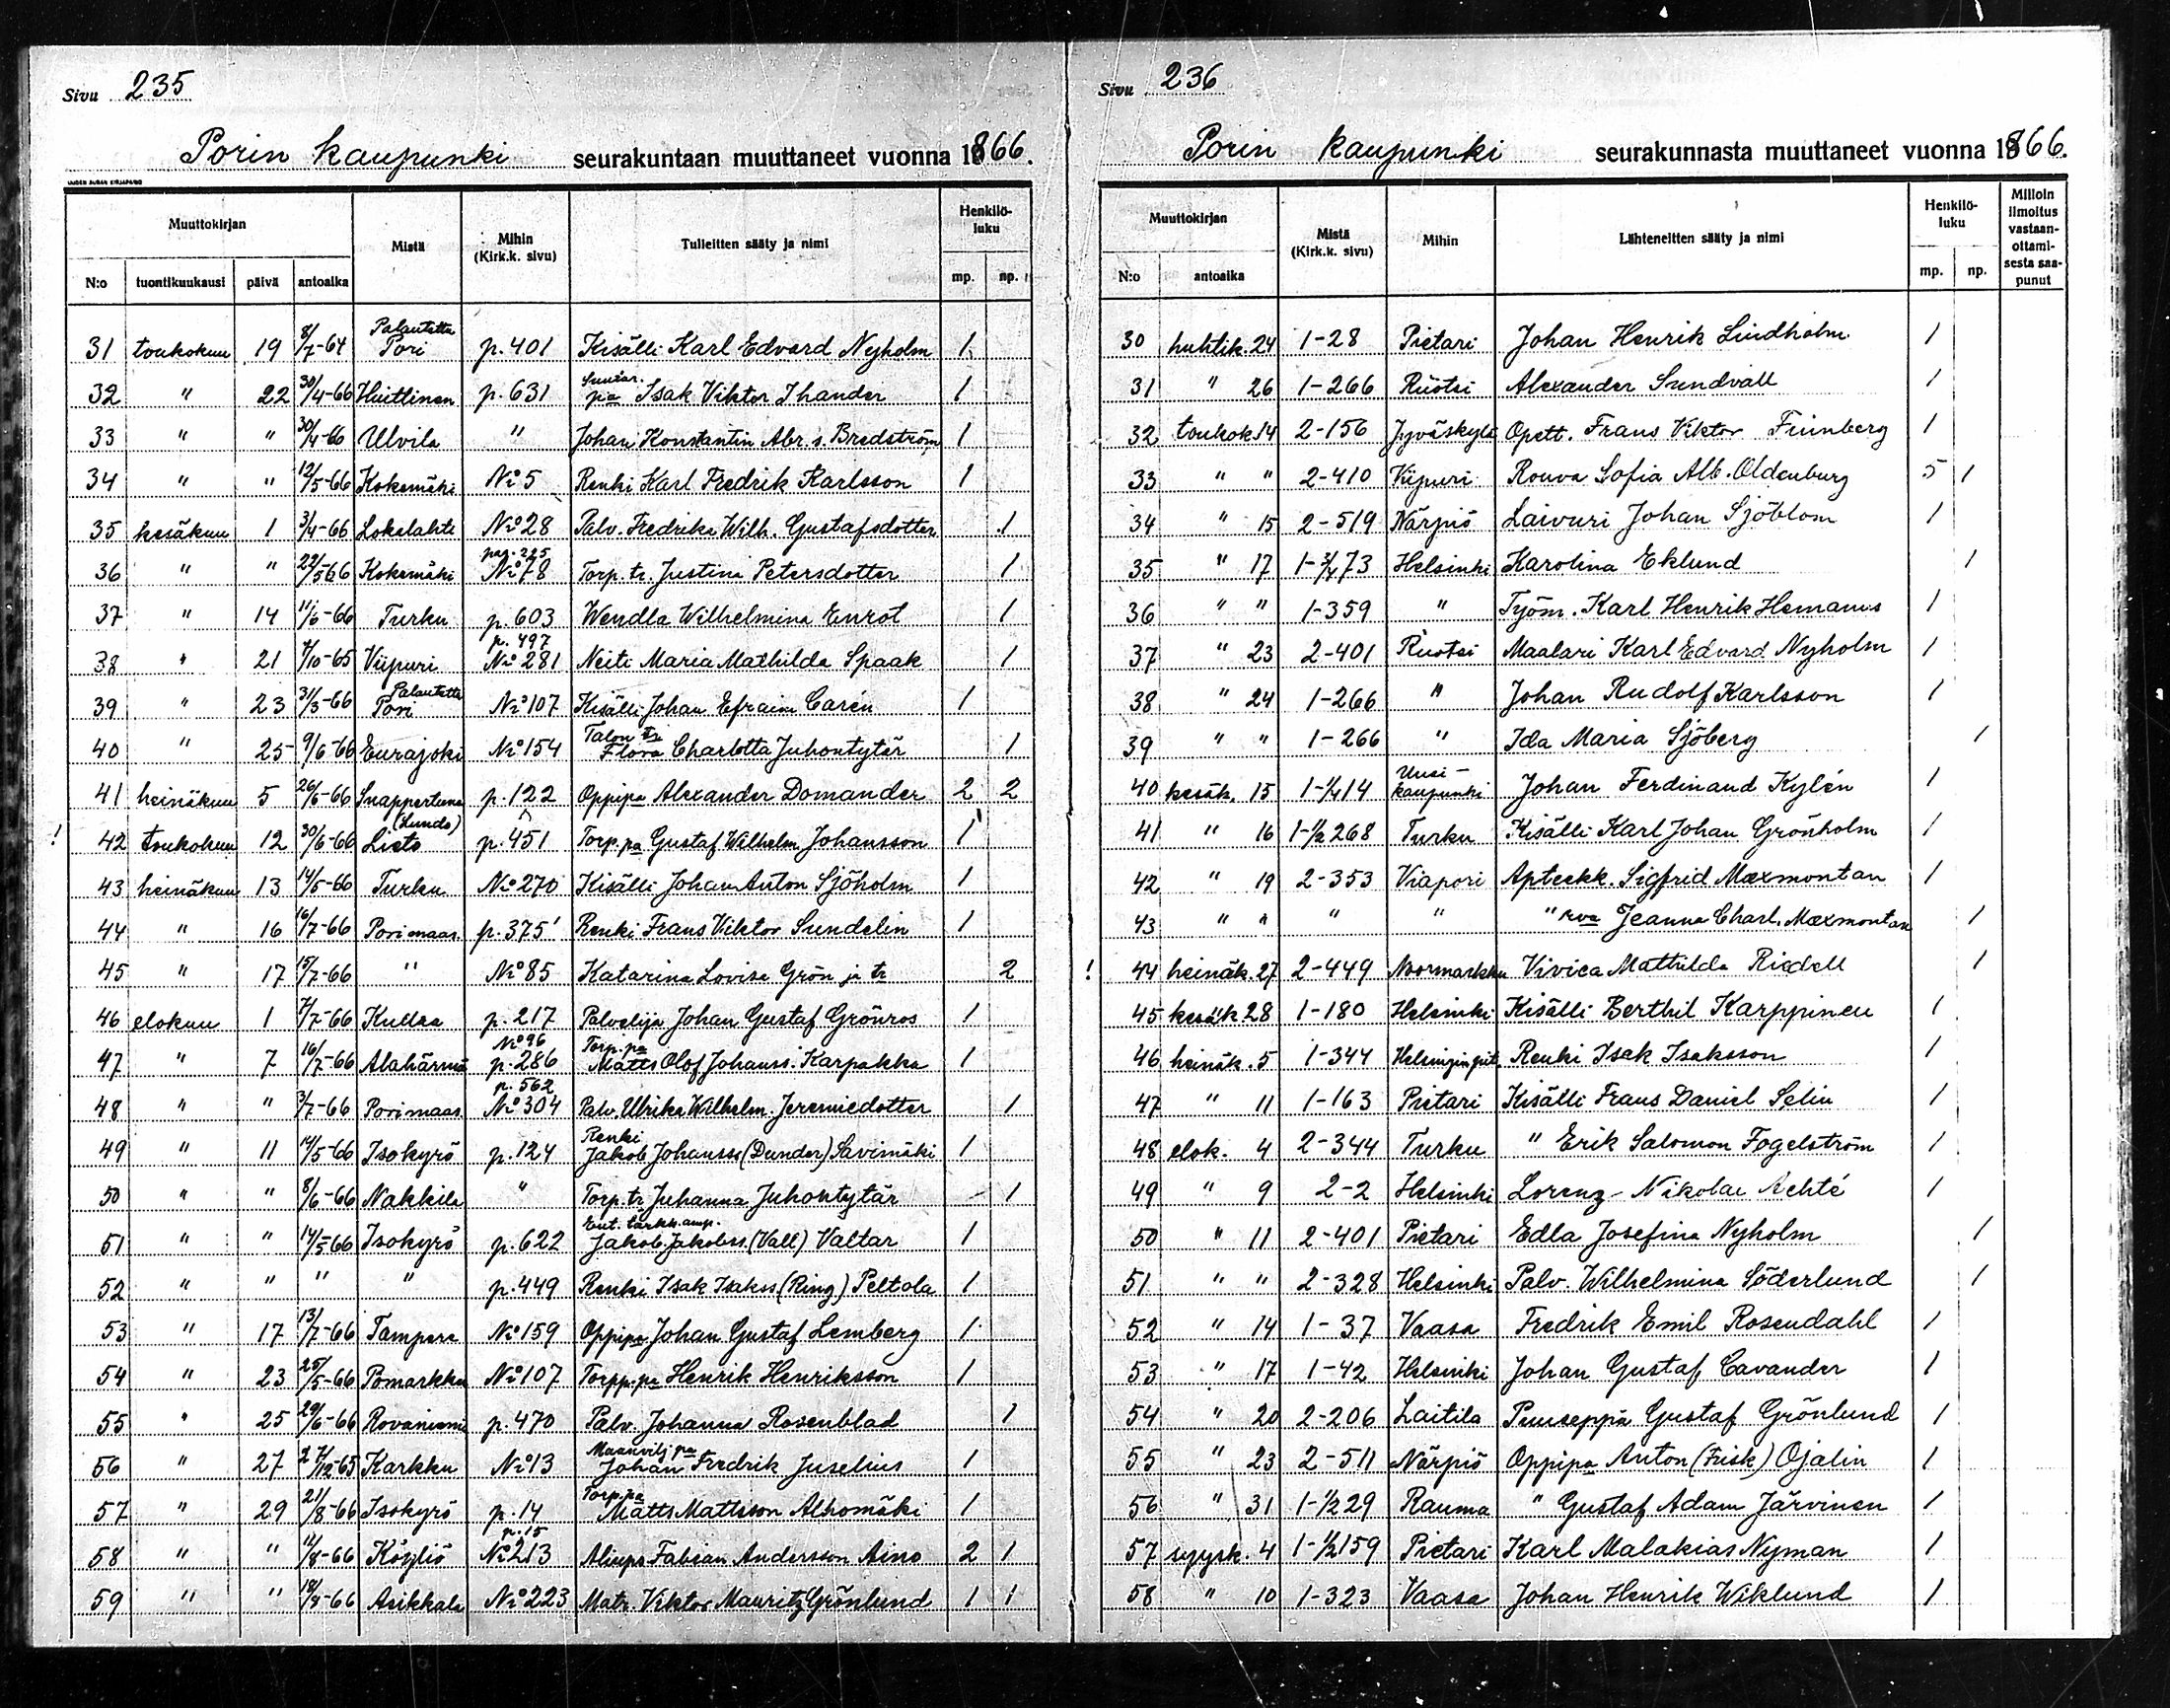 Sivu 235
Porin kaupunki seurakuntaan muuttaneet vuonna 1866.
UUDEN AURAN KIRJAPAINO
Muuttokirjan Mistä Mihin (Kirk.k. sivu) Tulleitten sääty ja nimi Henkilö-luku
N:o tuontikuukausi päivä antoaika mp. np.
31 toukokuu 19 8/7-64 Palautettu Pori p.401 Kisälli Karl Edvard Nyholm 1
32 " 22 30/4-66 Huittinen p.631 pa Isak Viktor Ihander 1
33 " " 30/4-66 Ulvila " Johan Konstantin Abr. s. Bredström 1
34 " " 12/5-66 Kokemäki No 5 Renki Karl Fredrik Karlsson 1
35 kesäkuu 1 3/4-66 Lokalahti No 28 Palv. Fredrika Wilh. Gustafsdotter 1
36 " " 22/5-66 Kokemäki pag. 225 No 78 Torp. tr. Justina Petersdotter 1
37 " 14 11/6-66 Turku p.603 Wendla Wilhelmina Enrot 1
38 " 21 4/10-65 Viipuri p.497 No 281 Neiti Maria Mathilda Spaak 1
39 " 23 31/3-66 Palautettu Pori No 107 Kisälli Johan Efraim Carén 1
40 " 25 9/6-66 Eurajoki No 154 Talon tr Flora Charlotta Juhontytär 1
41 heinäkuu 5 26/6-66 Snappertuna p.122 Oppipa Alexander Domander 2 2
! 42 toukokuu 12 30/6-66 (Lundo) Lieto p.451 Torp. pa Gustaf Wilhelm Johansson 1
43 heinäkuu 13 14/5-66 Turku No 270 Kisälli Johan Anton Sjöholm 1
44 " 16 16/7-66 Porimaas. p.375 Renki Frans Viktor Sundelin 1
45 " 17 15/7-66 " No 85 Katarina Lovisa Grön ja tr 2
46 elokuu 1 7/7-66 Kullaa p.217 Palvelija Johan Gustaf Grönros 1
47 " 7 16/7-66 Alahärmä No 96 p.286 Torp. pa Matts Olof Johanss. Karpakka 1
48 " " 3/7-66 Porimaas. p.562 No 304 Palv. Ulrika Wilhelm. Jeremiedotter 1
49 " 11 14/5-66 Isokyrö p.124 Renki Jakob Johanss (Dunder) Savimäki 1
50 " " 8/6-66 Nakkila " Torp. tr. Juhanna Juhontytär 1
51 " " 14/5-66 Isokyrö p.622 Ent. tarkk. amp. Jakob Jakobss. (Vall) Valtar 1
52 " " " " p.449 Renki Isak Isakss (Ring) Peltola 1
53 " 17 13/7-66 Tampere No 159 Oppipa Johan Gustaf Lemberg 1
54 " 23 25/5-66 Pomarkku No 107 Torpp. pa Henrik Henriksson 1
55 " 25 29/6-66 Rovaniemi p.470 Palv. Johanna Rosenblad 1
56 " 27 27/12-65 Karkku No 13 Maanvilj pa Johan Fredrik Juselius 1
57 " 29 21/8-66 Isokyrö p.14 Torp. pa Matts Mattsson Alhomäki 1
58 " " 12/8-66 Köyliö p.15 No 213 Aliups Fabian Andersson Aino 2 1
59 " " 18/8-66 Asikkala No 223 Matr. Viktor Mauritz Grönlund 1 1
Sivu 236
Porin kaupunki seurakunnasta muuttaneet vuonna 1866.
Muuttokirjan Mistä (Kirk.k. sivu) Mihin Lähteneitten sääty ja nimi Henkilö-luku Milloin ilmoitus vastaan-ottami-sesta saa-punut
N:o antoaika mp. np.
30 huhtik. 24 1-28 Pietari Johan Henrik Lindholm 1
31 " 26 1-266 Ruotsi Alexander Sundvall 1
32 toukok. 14 2-156 Jyväskylä Opett. Frans Viktor Frimberg 1
33 " " 2-410 Viipuri Rouva Sofia Alb. Oldenburg 5 1
34 " 15 2-519 Närpiö Laivuri Johan Sjöblom 1
35 " 17 1-3/4 73 Helsinki Karolina Eklund 1
36 " " 1-359 " Työm. Karl Henrik Hemanus 1
37 " 23 2-401 Ruotsi Maalari Karl Edvard Nyholm 1
38 " 24 1-266 " Johan Rudolf Karlsson 1
39 " " 1-266 " Ida Maria Sjöberg 1
40 kesäk. 15 1-1/4 14 Uusi-kaupunki Johan Ferdinand Kylén 1
41 " 16 1-1/2 268 Turku Kisälli Karl Johan Grönholm 1
42 " 19 2-353 Viapori Apteekk. Sigfrid Mæxmontan 1
43 " " " " " rva Jeanna Charl. Mæxmontan 1
! 44 heinäk. 27 2-449 Noormarkku Vivica Mathilda Riedell 1
45 kesäk. 28 1-180 Helsinki Kisälli Berthil Karppinen 1
46 heinäk. 5 1-344 Helsingin pit. Renki Isak Isaksson 1
47 " 11 1-163 Pietari Kisälli Frans Daniel Selin 1
48 elok. 4 2-344 Turku " Erik Salomon Fogelström 1
49 " 9 2-2 Helsinki Lorenz Nikolai Achté 1
50 " 11 2-401 Pietari Edla Josefina Nyholm 1
51 " " 2-328 Helsinki Palv. Wilhelmina Söderlund 1
52 " 14 1-37 Vaasa Fredrik Emil Rosendahl 1
53 " 17 1-42 Helsinki Johan Gustaf Cavander 1
54 " 20 2-206 Laitila Puuseppä Gustaf Grönlund 1
55 " 23 2-511 Närpiö Oppipa Anton (Frisk) Ojalin 1
56 " 31 1-1/2 29 Rauma " Gustaf Adam Järvinen 1
57 syysk. 4 1-1/2 159 Pietari Karl Malakias Nyman 1
58 " 10 1-323 Vaasa Johan Henrik Wiklund 1